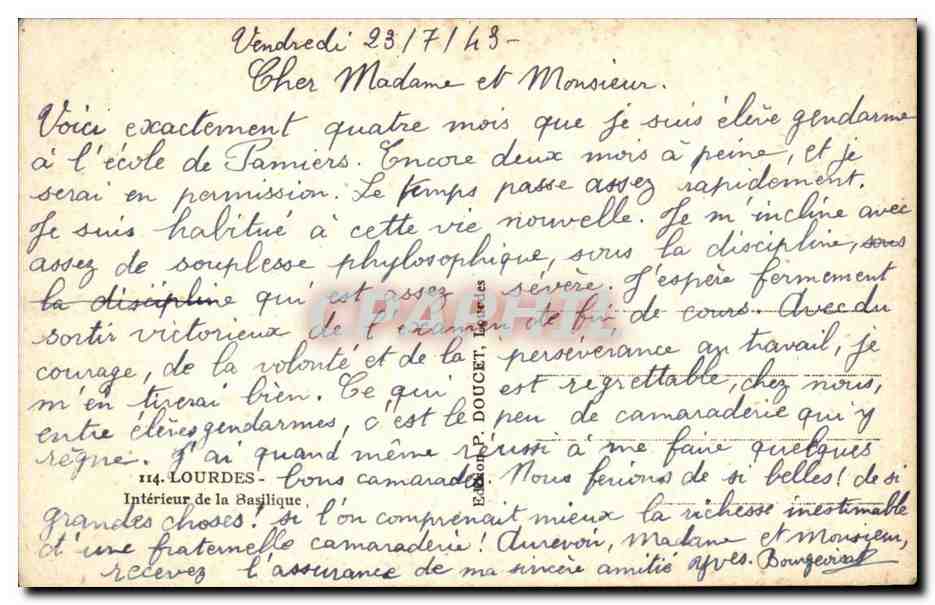 Vendredi 23/7/43-
Cher Madame et Monsieur.
Voici exactement quatre mois que je suis élève gendarme
à l'école de Pamiers. Encore deux mois à peine, et je
serai en permission. Le temps passe assez rapidement.
Je suis habitué à cette vie nouvelle. Je m'incline avec
assez de souplesse phylosophique, sous la discipline, sous
la discipline qui est assez sévère. J'espère fermement
sortir victorieux de l'examen de fin, de cours. Avec du
courage, de la volonté et de la persévérance au travail, je
m'en tirerai bien. Ce qui est regrettable, chez nous,
entre élèves gendarmes, c'est le peu de camaraderie qui y
règne. J'ai quand même réussi à me faire quelques
bons camarades. Nous ferions de si belles! de si
grandes choses! si l'on comprenait mieux la richesse inestimable
d'une fraternelle camaraderie! Aurevoir, Madame et Monsieur,
recevez l'assurance de ma sincère amitié Yves.
114. LOURDES -
Intérieur de la Basilique
Edition P. DOUCET, Lourdes
CPAPHIL